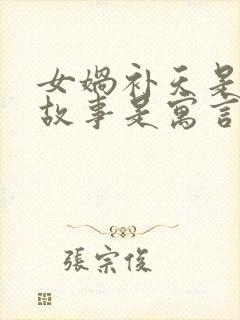 女媧补天是
故事是寓言
張宗俊